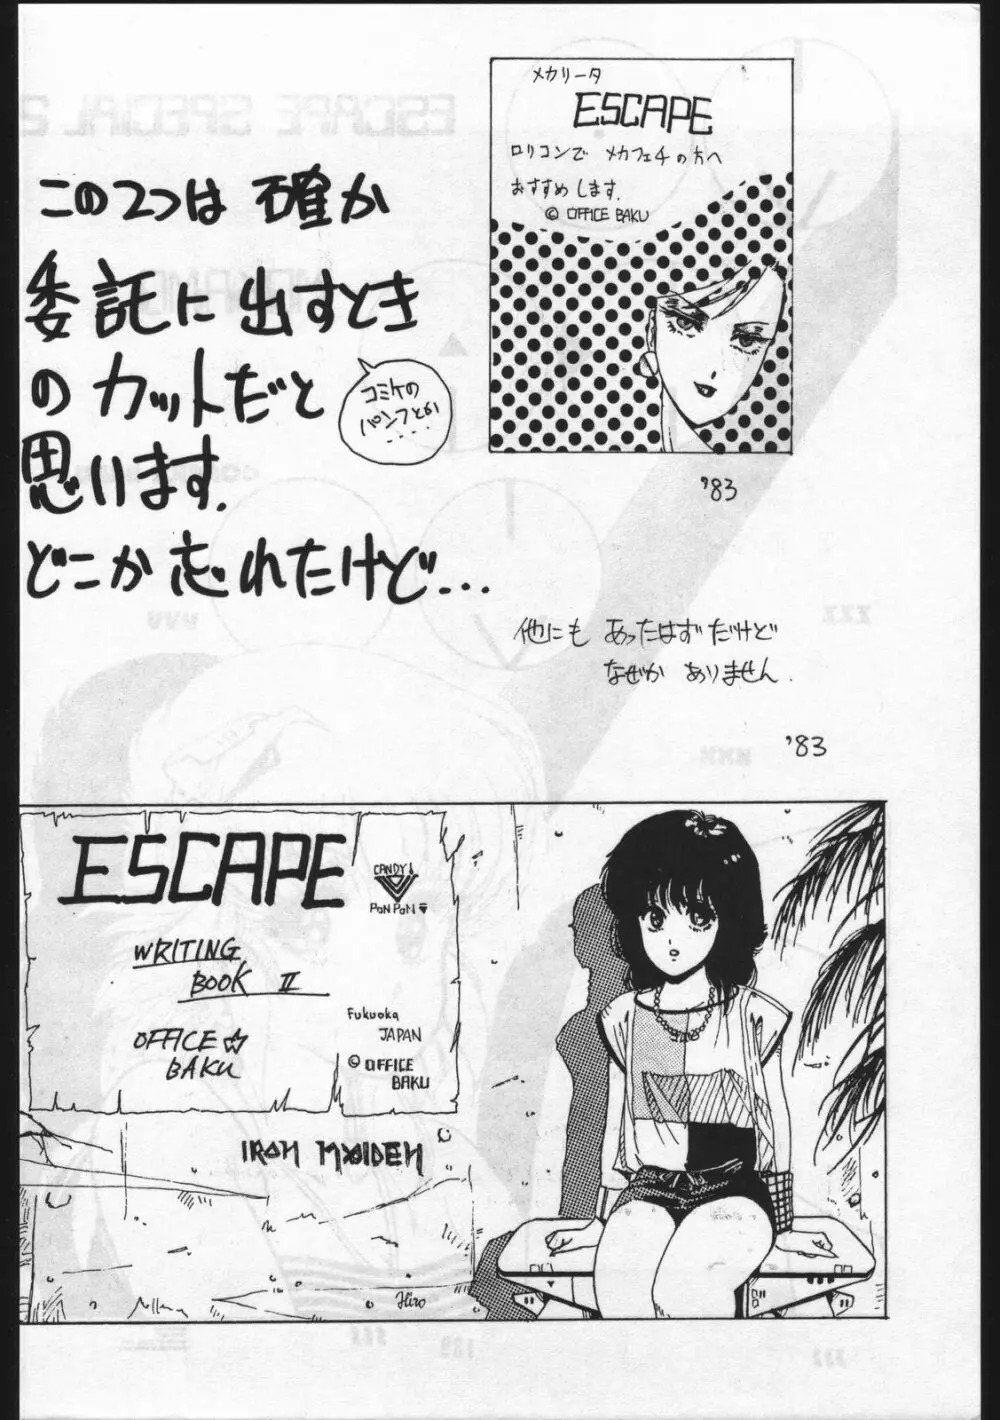 メカリータ
ESCAPE
ロリコンで メカフェチの方へ
おすすめします.
© OFFICE BAKU
この2つは 確か
委託に出すとき
のカットだと
思います.
どこか忘れたけど...
コミケの
パンフとか
....
'83
他にも あったはずだけど
なぜか ありません.
'83
ESCAPE
CANDY!
PAN PAN
WRITING
BOOK II
OFFICE☆
BAKU
Fukuoka
JAPAN
© OFFICE
BAKU
IRON MAIDEN
Hiro